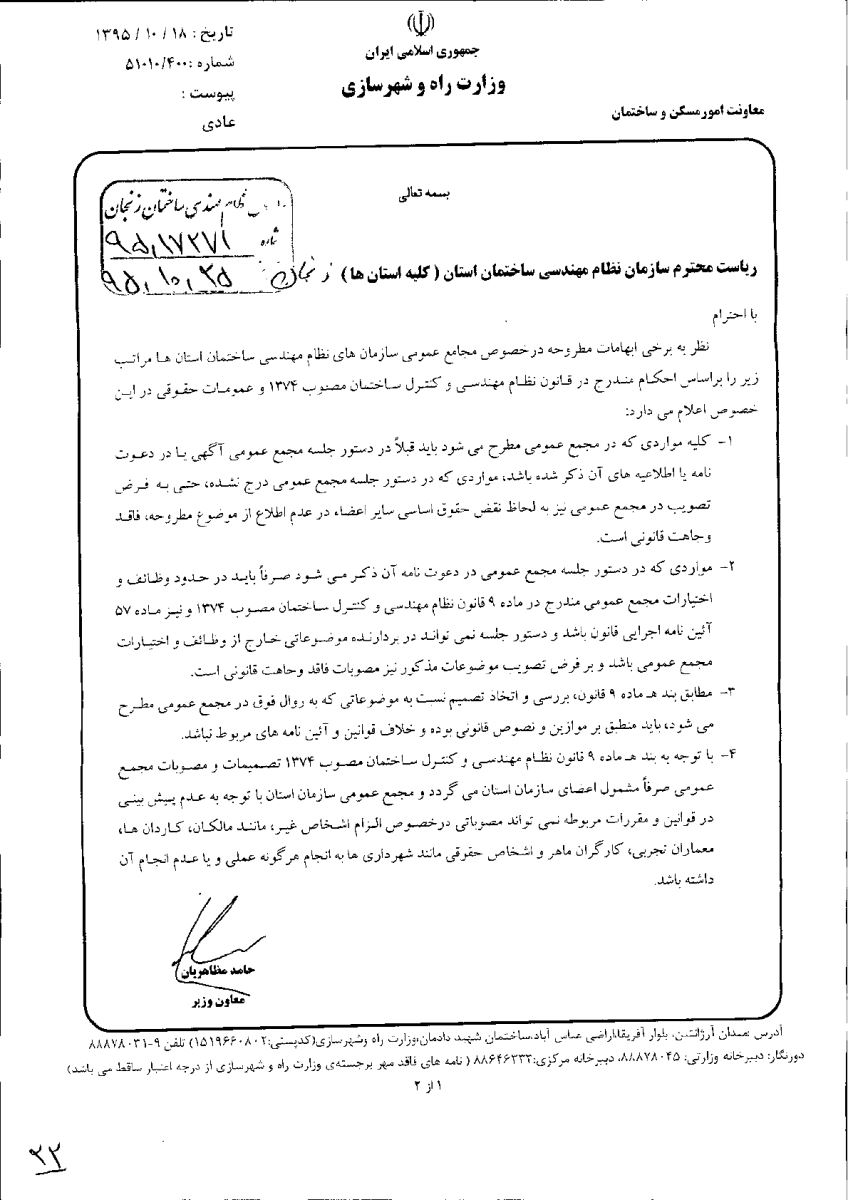 تاریخ : ۱۸ / ۱۰ / ۱۳۹۵
شماره :۵۱۰۱۰/۴۰۰
پیوست :
عادی
جمهوری اسلامی ایران
وزارت راه و شهرسازی
معاونت امور مسکن و ساختمان
بسمه تعالی
نظام مهندسی ساختمان زنجان
شماره ۹۵,۱۷۲۷۱
۹۵,۱۰,۲۵
ریاست محترم سازمان نظام مهندسی ساختمان استان ( کلیه استان ها ) زنجان
با احترام
نظر به برخی ابهامات مطروحه درخصوص مجامع عمومی سازمان های نظام مهندسی ساختمان استان ها مراتب
زیر را براساس احکام مندرج در قانون نظام مهندسی و کنترل ساختمان مصوب ۱۳۷۴ و عمومات حقوقی در این
خصوص اعلام می دارد:
۱- کلیه مواردی که در مجمع عمومی مطرح می شود باید قبلاً در دستور جلسه مجمع عمومی آگهی یا در دعوت
نامه یا اطلاعیه های آن ذکر شده باشد، مواردی که در دستور جلسه مجمع عمومی درج نشده، حتی به فرض
تصویب در مجمع عمومی نیز به لحاظ نقض حقوق اساسی سایر اعضاء در عدم اطلاع از موضوع مطروحه، فاقد
وجاهت قانونی است.
۲- مواردی که در دستور جلسه مجمع عمومی در دعوت نامه آن ذکر می شود صرفاً باید در حدود وظائف و
اختیارات مجمع عمومی مندرج در ماده ۹ قانون نظام مهندسی و کنترل ساختمان مصوب ۱۳۷۴ و نیز ماده ۵۷
آئین نامه اجرایی قانون باشد و دستور جلسه نمی تواند در بردارنده موضوعاتی خارج از وظائف و اختیارات
مجمع عمومی باشد و بر فرض تصویب موضوعات مذکور نیز مصوبات فاقد وجاهت قانونی است.
۳- مطابق بند هـ ماده ۹ قانون، بررسی و اتخاذ تصمیم نسبت به موضوعاتی که به روال فوق در مجمع عمومی مطرح
می شود، باید منطبق بر موازین و نصوص قانونی بوده و خلاف قوانین و آئین نامه های مربوط نباشد.
۴- با توجه به بند هـ ماده ۹ قانون نظام مهندسی و کنترل ساختمان مصوب ۱۳۷۴ تصمیمات و مصوبات مجمع
عمومی صرفاً مشمول اعضای سازمان استان می گردد و مجمع عمومی سازمان استان با توجه به عدم پیش بینی
در قوانین و مقررات مربوطه نمی تواند مصوباتی درخصوص الزام اشخاص غیر، مانند مالکان، کاردان ها،
معماران تجربی، کارگران ماهر و اشخاص حقوقی مانند شهرداری ها به انجام هرگونه عملی و یا عدم انجام آن
داشته باشد.
حامد مظاهریان
معاون وزیر
آدرس :میدان آرژانتین، بلوار آفریقا،اراضی عباس آباد،ساختمان شهید دادمان،وزارت راه وشهرسازی(کدپستی:۱۵۱۹۶۶۰۸۰۲) تلفن ۹-۸۸۸۷۸۰۳۱
دورنگار: دبیرخانه وزارتی: ۸۸۸۷۸۰۴۵، دبیرخانه مرکزی:۸۸۶۴۶۳۳۲ ( نامه های فاقد مهر برجسته‌ی وزارت راه و شهرسازی از درجه اعتبار ساقط می باشد)
۱ از ۲
۲۲